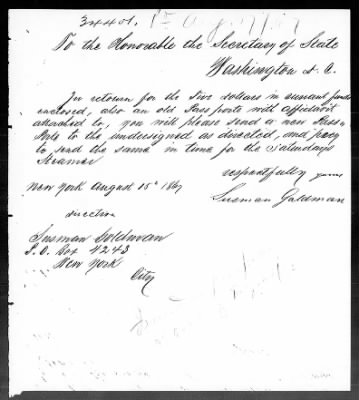 34401.
To the Honorable the Secretary of State
Washington D. C.
In return for the five dollars in current funds
enclosed, also an old Passport with affidavit
attached to, you will please send a new Pass=
Ports to the undersigned as directed, and pray
to send the same in time for the Saturdays
Steamer
respectfully yours
New York August 15th 1867
Susman Goldman
direction
Susman Goldman
P.O. Box 4243
New York
City